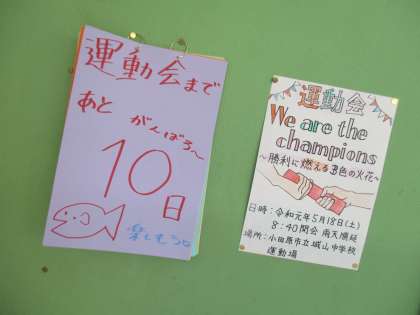 運動会まで
あと
がんばろ〜
10日
楽しもう
運動会
We are the
champions
〜勝利に燃える3色の火花〜
日時:令和元年5月18日(土)
8:40開会 雨天順延
場所:小田原市立城山中学校
運動場